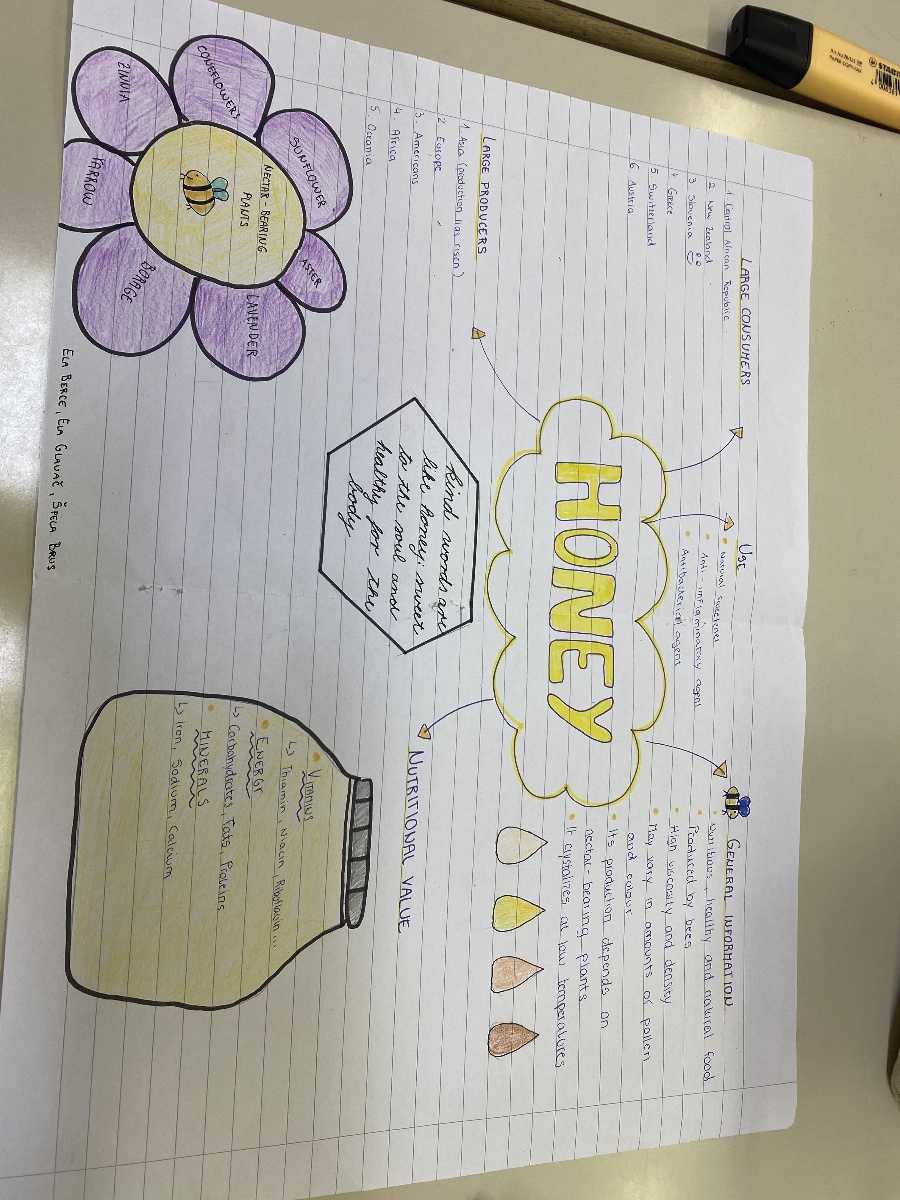 HONEY
LARGE CONSUMERS
1. Central African Republic
2. New Zealand
3. Slovenia
4. Greece
5. Switzerland
6. Austria
Use
Natural sweetener
Anti-inflammatory agent
Antibacterial agent
GENERAL INFORMATION
Nutritious, healthy and natural food
Produced by bees
High viscosity and density
May vary in amounts of pollen
and colour
It's production depends on
nectar-bearing plants
It crystalizes at low temperatures
LARGE PRODUCERS
1. Asia (production has risen)
2. Europe
3. Americans
4. Africa
5. Oceania
Kind words are
like honey: sweet
to the soul and
healthy for the
body
NUTRITIONAL VALUE
VITAMINS
↳ Thiamin, Niacin, Riboflavin...
ENERGY
↳ Carbohydrates, Fats, Proteins
MINERALS
↳ Iron, Sodium, Calcium
NECTAR-BEARING
PLANTS
CONEFLOWERS
SUNFLOWER
ASTER
LAVENDER
BORAGE
YARROW
ZINNIA
ELA BERCE, ELA GLAVAČ, ŠPELA BRUS
STABI